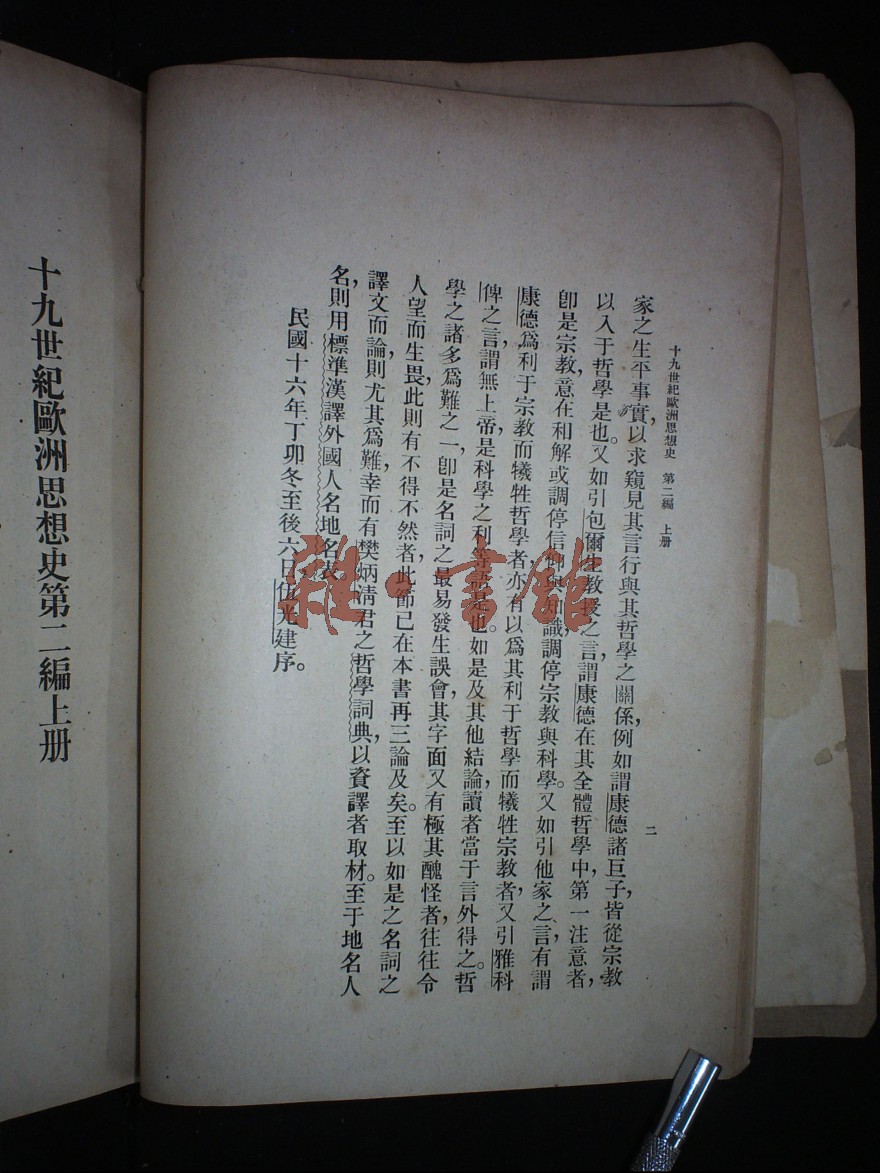 十九世紀歐洲思想史　第二編　上册
二
家之生平事實，以求窺見其言行與其哲學之關係，例如謂康德諸巨子，皆從宗教
以入于哲學是也。又如引包爾生教授之言，謂康德在其全體哲學中，第一注意者，
卽是宗教，意在和解或調停信仰與知識，調停宗教與科學。又如引他家之言，有謂
康德爲利于宗教而犧牲哲學者，亦有以爲其利于哲學而犧牲宗教者，又引雅科
俾之言，謂無上帝是科學之利等語是也。如是及其他結論，讀者當于言外得之。哲
學之諸多爲難之一，卽是名詞之最易發生誤會，其字面又有極其醜怪者，往往令
人望而生畏，此則有不得不然者，此節已在本書再三論及矣。至以如是之名詞之
譯文而論，則尤其爲難，幸而有樊炳淸君之哲學詞典，以資譯者取材。至于地名人
名，則用標準漢譯外國人名地名表。
民國十六年丁卯冬至後六日，伍光建序。
十九世紀歐洲思想史第二編上册
雜·書館